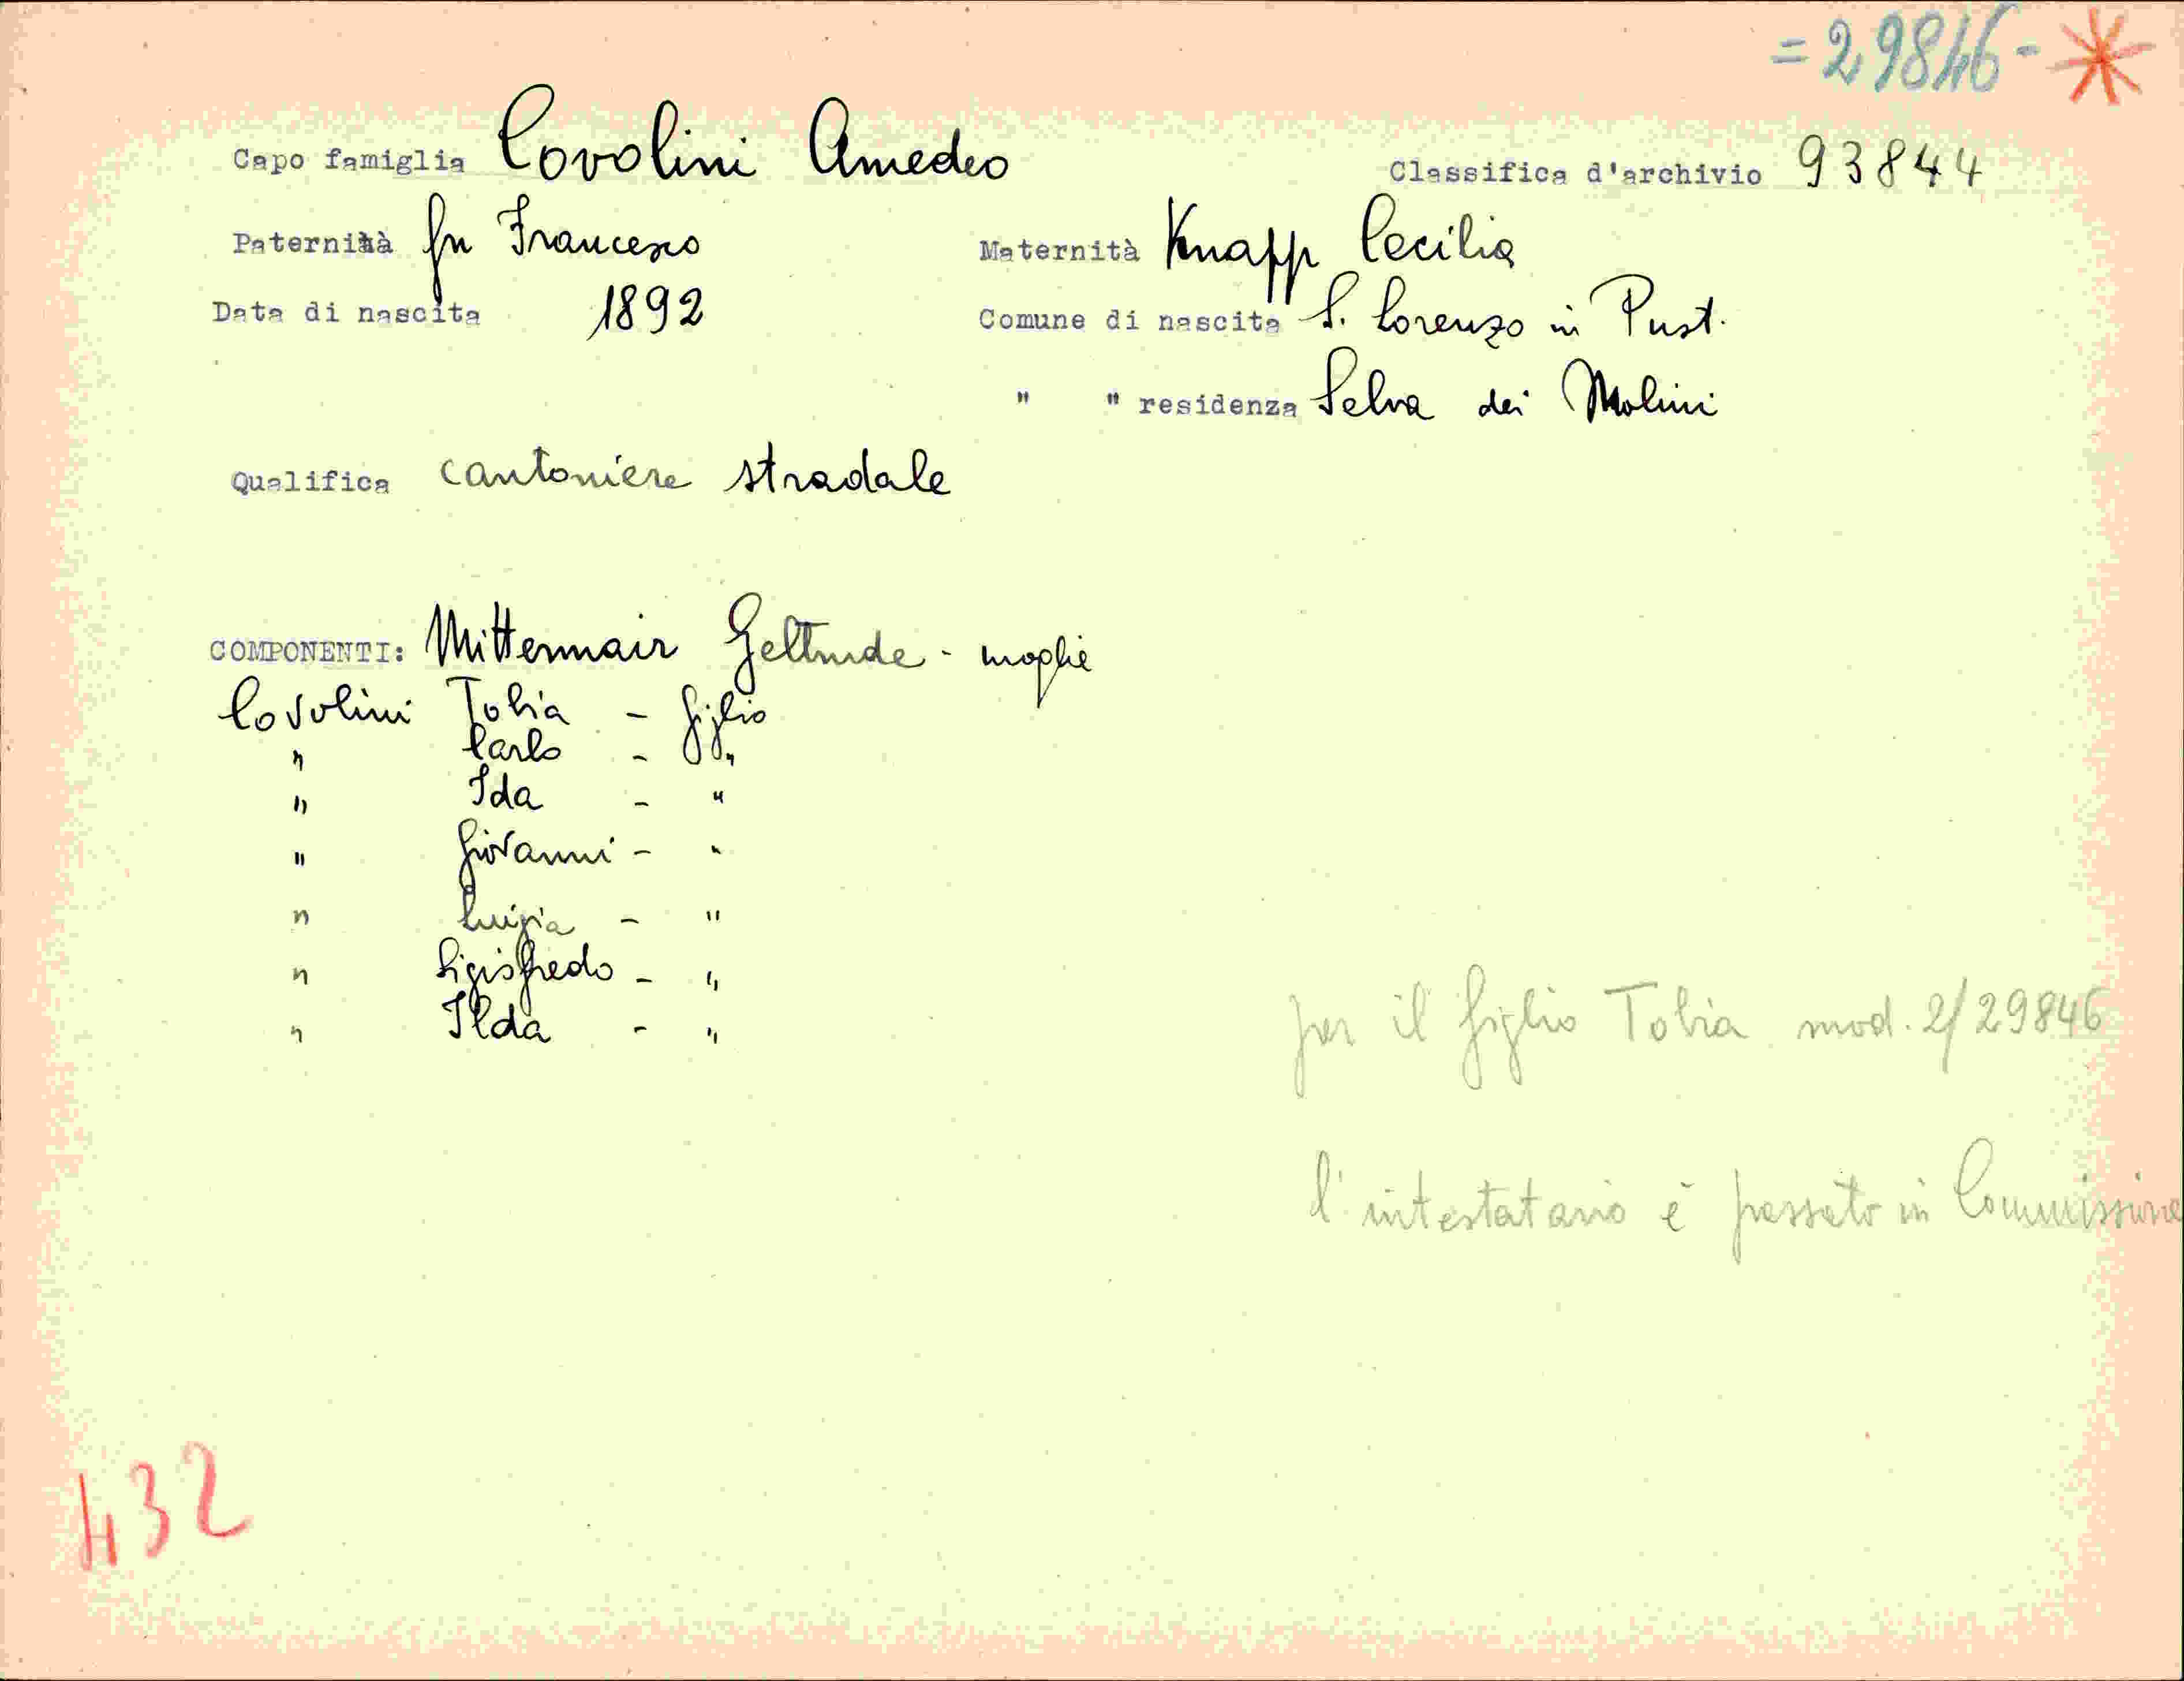 =29846-
Capo famiglia Covolini Amedeo Classifica d'archivio 93844
Paternità fu Francesco Maternità Knapp Cecilia
Data di nascita 1892 Comune di nascita S. Lorenzo in Pust.
" " residenza Selva dei Molini
Qualifica cantoniere stradale
COMPONENTI: Mittermair Geltrude - moglie
Covolini Tobia - figlio
" Carlo - "
" Ida - "
" Giovanni - "
" Luigia - "
" Sigisfredo - "
" Ilda - "
per il figlio Tobia mod. 2/29846
l'intestatario è passato in Commissione
432